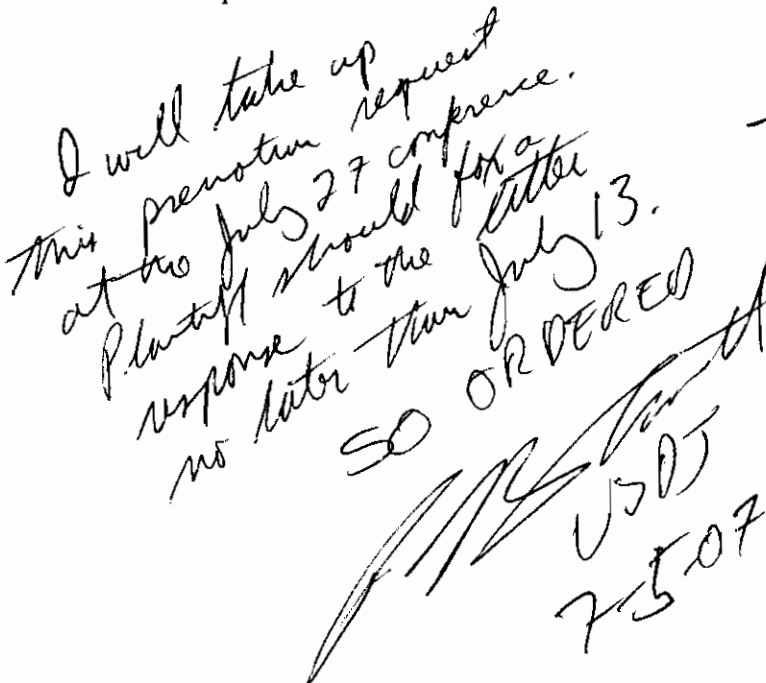 I will take up
this premotion request
at the July 27 conference.
Plaintiff should fax a
response to the letter
no later than July 13.
SO ORDERED
USDJ
7-5-07